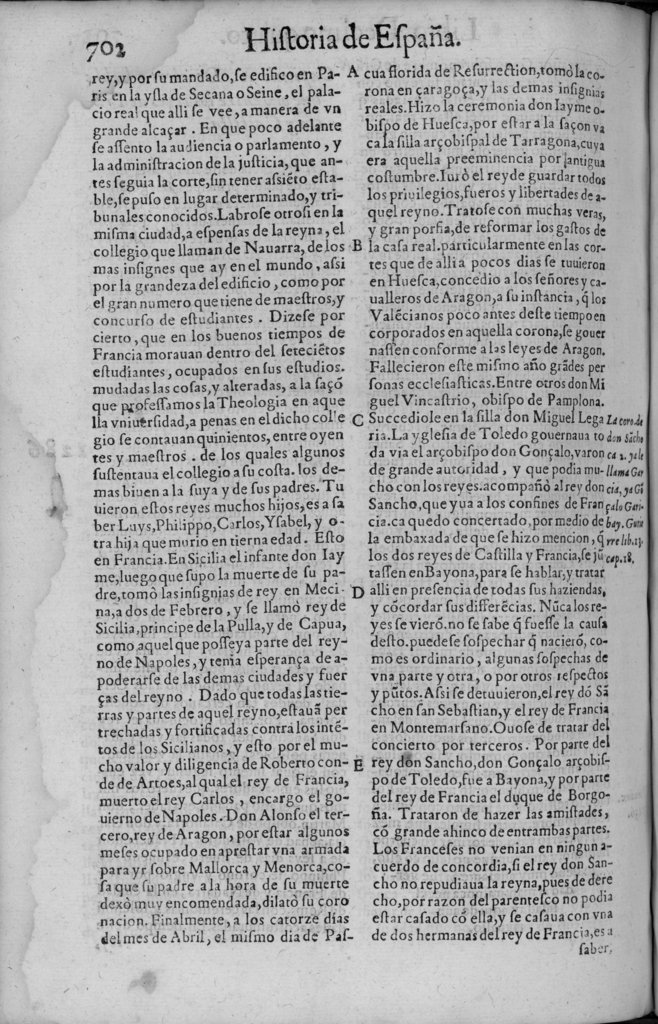 702
Historia de España.
rey,y por su mandado,se edifico en Pa-
ris en la ysla de Secana o Seine, el pala-
cio real que alli se vee, a manera de vn
grande alcaçar. En que poco adelante
se assento la audiencia o parlamento, y
la administracion de la justicia, que an-
tes seguia la corte,sin tener assiēto esta-
ble,se puso en lugar determinado,y tri-
bunales conocidos.Labrose otrosi en la
misma ciudad,a espensas de la reyna, el
collegio que llaman de Nauarra, de los
mas insignes que ay en el mundo, assi
por la grandeza del edificio, como por
el gran numero que tiene de maestros,y
concurso de estudiantes. Dizese por
cierto, que en los buenos tiempos de
Francia morauan dentro del seteciētos
estudiantes, ocupados en sus estudios.
mudadas las cosas,y alteradas, a la saçō
que professamos la Theologia en aque
lla vniuersidad,a penas en el dicho colle
gio se contauan quinientos, entre oyen
tes y maestros. de los quales algunos
sustentaua el collegio a su costa. los de-
mas biuen a la suya y de sus padres. Tu
uieron estos reyes muchos hijos, es a sa
ber Luys,Philippo,Carlos,Ysabel, y o-
tra hija que murio en tierna edad. Esto
en Francia.En Sicilia el infante don Iay
me,luego que supo la muerte de su pa-
dre,tomò las insignias de rey en Meci-
na,a dos de Febrero, y se llamò rey de
Sicilia,principe de la Pulla,y de Capua,
como aquel que posseya parte del rey-
no de Napoles, y tenia esperança de a-
poderarse de las demas ciudades y fuer
ças del reyno. Dado que todas las tie-
rras y partes de aquel reyno,estauā per
trechadas y fortificadas contra los intē-
tos de los Sicilianos, y esto por el mu-
cho valor y diligencia de Roberto con-
de de Artoes,al qual el rey de Francia,
muerto el rey Carlos, encargo el go-
uierno de Napoles. Don Alonso el ter-
cero,rey de Aragon, por estar algunos
meses ocupado en aprestar vna armada
para yr sobre Mallorca y Menorca,co-
sa que su padre a la hora de su muerte
dexò muy encomendada, dilatò su coro
nacion. Finalmente, a los catorze dias
del mes de Abril, el mismo dia de Pas-
A
B
C
D
E
cua florida de Resurrection,tomò la co-
rona en çaragoça,y las demas insignias
reales.Hizo la ceremonia don Iayme o-
bispo de Huesca,por estar a la saçon va
ca la silla arçobispal de Tarragona,cuya
era aquella preeminencia por antigua
costumbre.Iurò el rey de guardar todos
los priuilegios,fueros y libertades de a-
quel reyno. Tratose con muchas veras,
y gran porfia,de reformar los gastos de
la casa real.particularmente en las cor-
tes que de alli a pocos dias se tuuieron
en Huesca,concedio a los señores y ca-
ualleros de Aragon,a su instancia, q̄ los
Valēcianos poco antes deste tiempo en
corporados en aquella corona,se gouer
nassen conforme a las leyes de Aragon.
Fallecieron este mismo año grādes per
sonas ecclesiasticas.Entre otros don Mi
guel Vincastrio, obispo de Pamplona.
Succediole en la silla don Miguel Lega
ria.La yglesia de Toledo gouernaua to
da via el arçobispo don Gonçalo,varon
de grande autoridad, y que podia mu-
cho con los reyes.acompañò al rey don
Sancho,que yua a los confines de Fran
cia.ca quedo concertado, por medio de
la embaxada de que se hizo mencion, q̄
los dos reyes de Castilla y Francia,se jū
tassen en Bayona,para se hablar,y tratar
alli en presencia de todas sus haziendas,
y cōcordar sus differēcias. Nūca los re-
yes se vierō.no se sabe q̄ fuesse la causa
desto.puedese sospechar q̄ nacierō, co-
mo es ordinario, algunas sospechas de
vna parte y otra, o por otros respectos
y pūtos.Assi se detuuieron,el rey dō Sā
cho en san Sebastian,y el rey de Francia
en Montemarsano.Ouose de tratar del
concierto por terceros. Por parte del
rey don Sancho, don Gonçalo arçobis-
po de Toledo,fue a Bayona,y por parte
del rey de Francia el duque de Borgo-
ña. Trataron de hazer las amistades,
cō grande ahinco de entrambas partes.
Los Franceses no venian en ningun a-
cuerdo de concordia,si el rey don San-
cho no repudiaua la reyna,pues de dere
cho,por razon del parentesco no podia
estar casado cō ella,y se casaua con vna
de dos hermanas del rey de Francia,es a
saber,
La coro. de
don Sācho
ca 2. ya le
llama Gar
cia, ya Gō
çalo Garci
bay. Garci
cap.18,